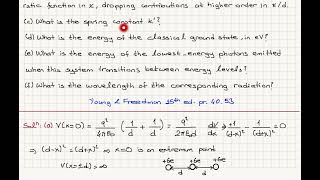 ratic function in x, dropping contributions at higher order in x/d.
(c) What is the spring constant k'?
(d) What is the energy of the classical ground state, in eV?
(e) What is the energy of the lowest-energy photons emitted
when this system transitions between energy levels?
(f) What is the wavelength of the corresponding radiation?
Young & Freedman 15th ed. pr. 40.53
Solⁿ: (a) V(x=0) = q²/4πε₀ (1/d + 1/d) = q²/2πε₀d dV/dx ∝ 1/(d-x)² - 1/(d+x)² = 0
⇒ (d-x)² = (d+x)² ⇒ x=0 is an extremum point
V(x=±d) = ∞ +6e +6e +6e
d d